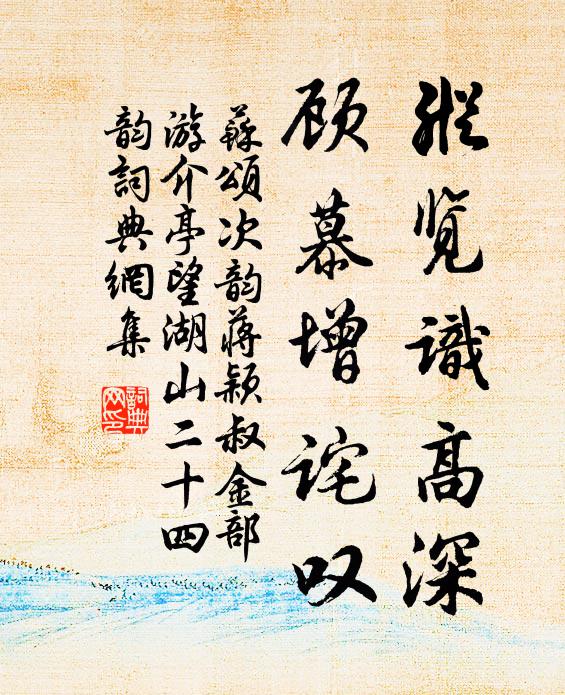 縱览識高深
顾慕增诧叹
蘇頌次韵蒋颖叔金部
游介亭望湖山二十四
韵詞典網集
詞典
网印